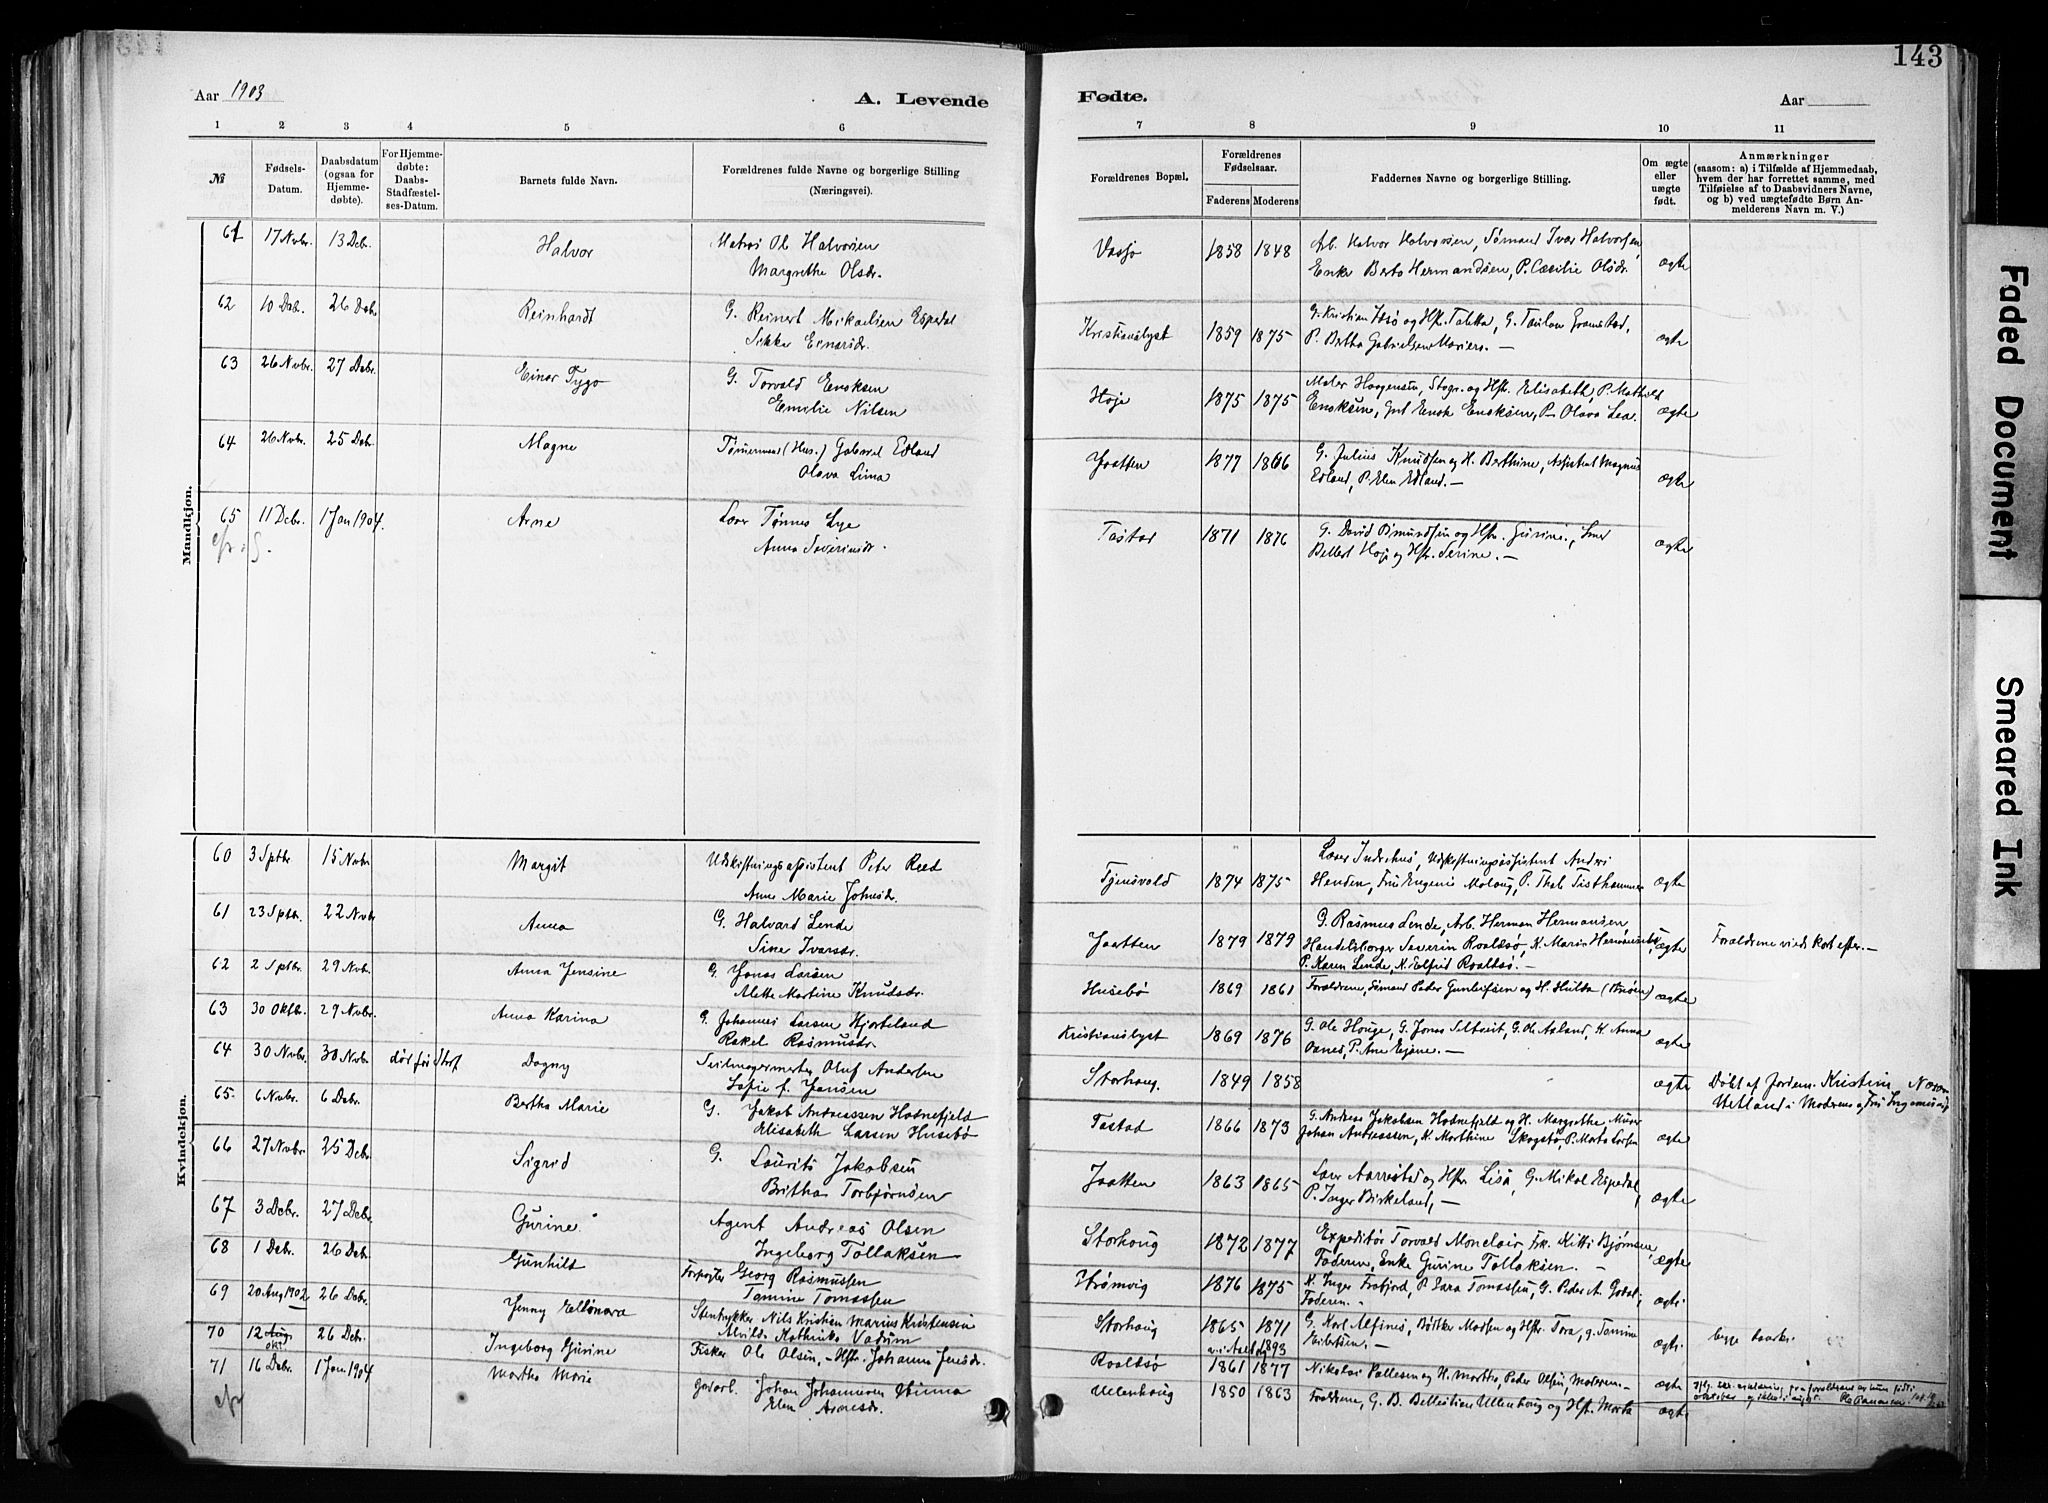 143
Aar 1903
A. Levende
Fødte.
Aar
1 2 3 4 5 6 7 8 9 10 11
№
Fødsels-Datum.
Daabsdatum (ogsaa for Hjemme-døbte).
For Hjemme-døbte: Daabs-Stadfæstel-ses-Datum.
Barnets fulde Navn.
Forældrenes fulde Navne og borgerlige Stilling (Næringsvei).
Forældrenes Bopæl.
Forældrenes Fødselsaar.
Faderens Moderens
Faddernes Navne og borgerlige Stilling.
Om ægte eller uægte født.
Anmærkninger
(saasom: a) i Tilfælde af Hjemmedaab, hvem der har forrettet samme, med Tilføielse af to Daabsvidners Navne, og b) ved uægtefødte Børn An-melderens Navn m. V.)
Mandkjøn.
61 17 Nvbr. 13 Debr. Halvor Matros Ol. Halvorsen
Margrethe Olsdr.
Vassø 1858 1848 Arb. Halvor Halvorsen, Sømand Ivar Halvorsen,
Enke Berta Hermandsen, P. Cæcilie Olsdr. ægte
62 10 Debr. 26 Debr. Reinhardt G. Reinert Mikaelsen Espedal
Sikke Einarsdr.
Kristianslyst 1859 1875 G. Kristian og Hst. Taletta, G. Taulow
P. Bertha Gabrielsen — ægte
63 26 Nvbr. 27 Debr. Einar Tygo G. Torvald Enoksen
Emilie Nilsen
Høje 1875 1875 Maler Haagensen, og Hst. Elisabeth, P. Mathild
Enoksen, Gut Enok Enoksen, P. Olava Lea. ægte
64 26 Nvbr. 25 Debr. Magne Tømmermand (Hus.) Gabriel Edland
Olava Lima
Jaatten 1877 1866 G. Julius Knudsen og H. Berthine, Assistent Magnus
Edland, P. Elen Edland. — ægte
65 11 Debr. 1 Jan 1904. Arne Lærer Tønnes Lye
Anna Severinsdr.
Tastad 1871 1876 G. David Asmundsen og Hst. Gurine, Lærer
Bellest Høje og Hst. Serine. — ægte
Kvindekjøn.
60 3 Sptbr 15 Nvbr Margit Udskiftningsassistent Peter Reed
Anne Marie Johnsdr.
Tjensvold 1874 1875 Lærer Indrehus, Udskiftningsassistent Andri
Henden, Frk Eugenie P. Thel. Tisthammer ægte
61 23 Sptbr. 22 Nvbr Anna G. Halvard Lende
Sine Ivarsdr.
Jaatten 1879 1879 G. Rasmus Lende, Arb. Herman Hermansen,
Handelsborger Severin Roaldsø, K. Marie Hermansen
P. Karen Lende, K. Elfrid Roaldsø. — ægte Forældrene viede kort efter. —
62 2 Sptbr. 29 Nvbr. Anna Jensine G. Jonas Larsen
Alette Martine Knudsdr.
Husebø 1869 1861 Forældrene, Sømand Peder Gunleifsen og H. Hulda ægte
63 30 Oktbr. 29 Nvbr. Anna Karina G. Johannes Larsen Hjorteland
Rakel Rasmusdr.
Kristianslyst 1869 1876 G. Ole Houge, G. Jonas Seltveit, G. Ol. Aaland, K. Anna
Oanes, P. Ane — ægte
64 30 Nvbr. 30 Nvbr. død før Stadf Dagny Seilmagermester Oluf Andersen
Sofie f. Jansen
Storhoug. 1849 1858 ægte Døbt af Jordem. Kristine
Uetland i Moderens og Fru
65 6 Nvbr. 6 Debr. Bertha Marie G. Jakob Andreassen Hodnefjeld
Elisabeth Larsen Husebø
Tastad 1866 1873 G. Andreas Jakobsen Hodnefjeld og H. Margrethe, Murer
Johan Andreassen, K. Marthine Skogstø, P. Marta Larsen ægte
66 27 Nvbr. 25 Debr. Sigrid G. Laurits Jakobsen
Britha Torbjørnsen
Jaatten 1863 1865 Lærer Aarrestad og Hst. Lisa, G. Mikal Espedal,
P. Inger Birkeland, — ægte
67 3 Debr. 27 Debr. Gurine Agent Andreas Olsen
Ingeborg Tollaksen
Storhoug 1872 1877 Expeditør Torvald Monclair, Frk. Kitti Bjørnsen,
Faderen, Enke Gurine Tollaksen. ægte
68 1 Debr. 26 Debr Gunhild Forpagter Georg Rasmussen
Tomine Tomassen
Strømvig 1876 1875 K. Inger Frøbjord, P. Sara Tomassen, G. Peder A. Godal,
Faderen. ægte
69 20 Aug 1902 26 Debr. Jenny Ellonora Stentrykker Nils Kristian Marius Kristensen
Alvilda Kathrine Vadum
Storhoug 1865 1871 G. Karl Alfines, Bødker Madsen og Hst. Tora, G. Tomine
Eilertsen. — ægte begge
1893
70 12 Aug. okt 26 Debr. Ingeborg Gurine Fisker Ole Olsen, Hst. Johanna Jensdr.
Roaldsø 1861 1877 Nikolai Pallesen og H. Marthe, Peder Olsen, Moderen. — ægte
71 16 Debr. 1 Jan 1904 Martha Marie Gaardarb. Johan Johannesen Hinna
Elen Arnesdr.
Ullenhoug 1850 1863 Forældrene, G. B. Bellestsen Ullenhoug og Hst. Marta ægte
Faded Document
Smeared Ink